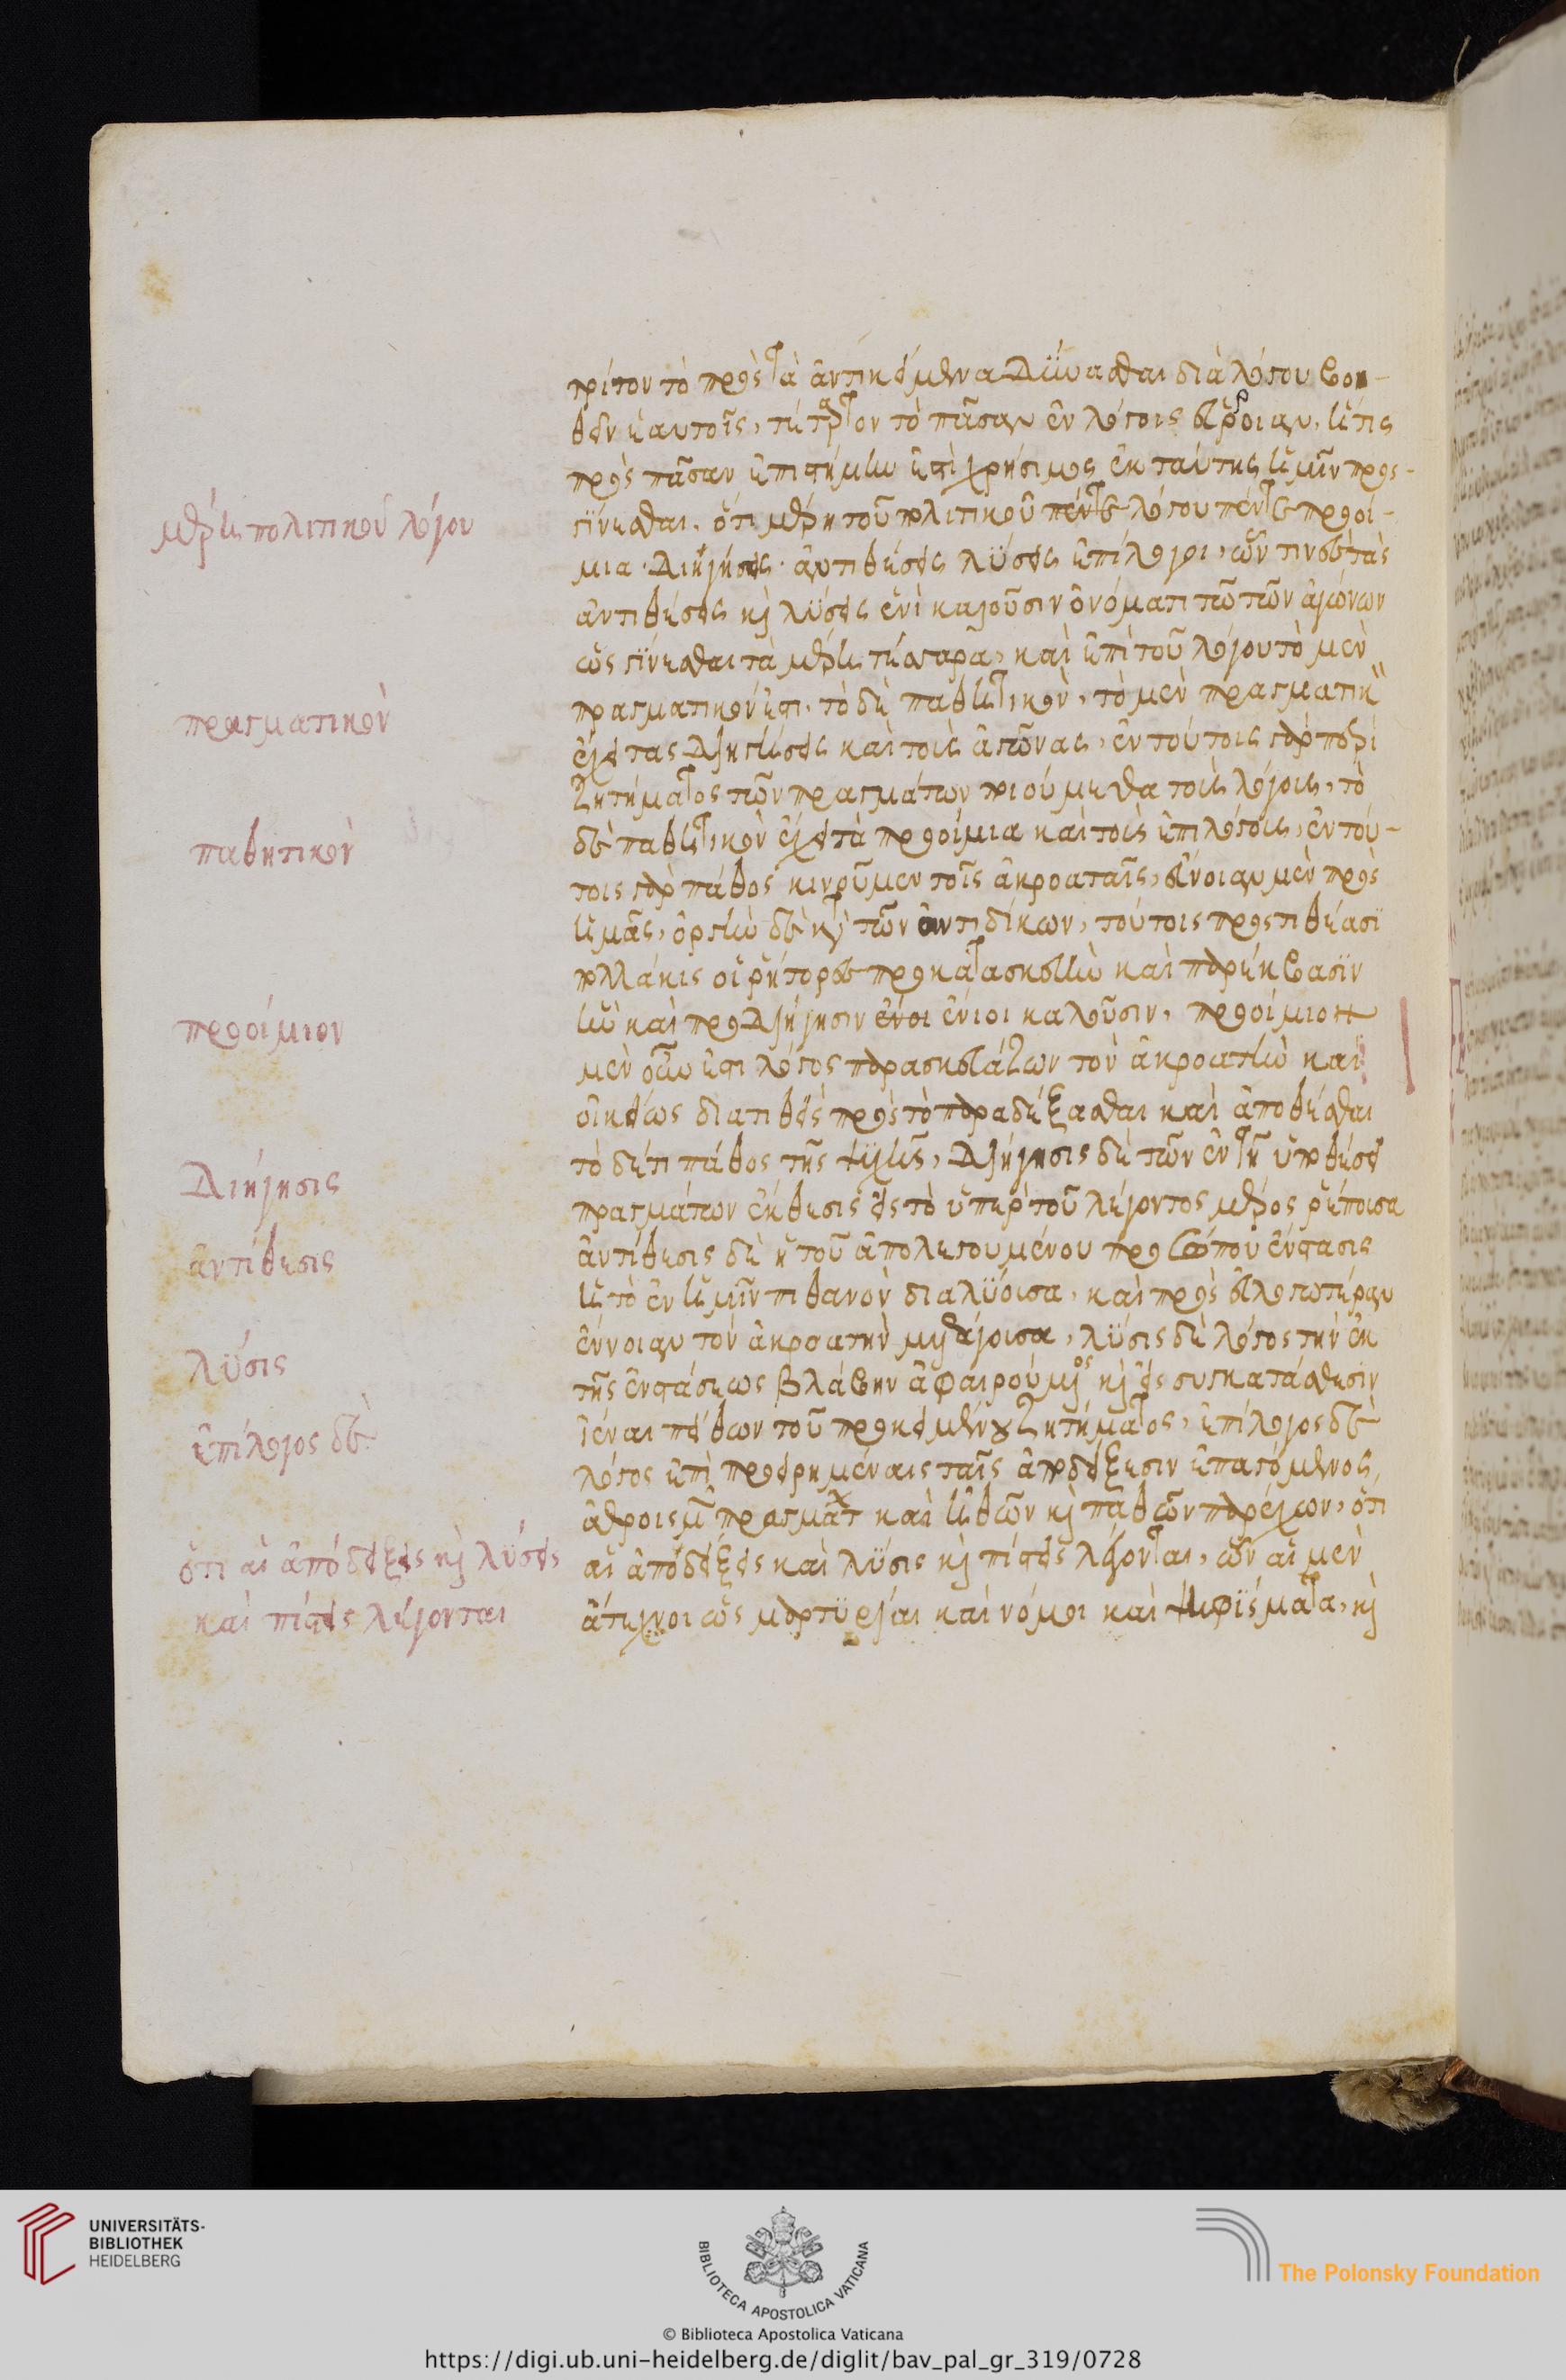 τρίτον τὸ πρὸς τὰ ἀντικείμενα δύνασθαι διὰ λόγου βοη-
θεῖν ἑαυτοῖς, τέταρτον τὸ πᾶσαν ἐν λόγοις εὔροιαν, ἥτις
πρὸς πᾶσαν ἐπιστήμην ἐστὶ χρήσιμος ἐκ ταύτης ἡμῖν προσ-
γίνεσθαι. ὅτι μέρη τοῦ πολιτικοῦ πέντε λόγου πέντε προοί-
μια. διηγήσεις. ἀντιθέσεις λύσεις ἐπίλογοι, ὧν τινὲς τὰς
ἀντιθέσεις καὶ λύσεις ἑνὶ καλοῦσιν ὀνόματι τῶ τῶν ἀγώνων
ὡς γίνεσθαι τὰ μέρη τέσσαρα, καὶ ἐπὶ τοῦ λόγου τὸ μὲν
πραγματικόν ἐστι, τὸ δὲ παθητικὸν, τὸ μὲν πραγματικὸν
ἔχει τὰς διηγήσεις καὶ τοὺς ἀγῶνας, ἐν τούτοις γὰρ περὶ
ζητήματος τῶν πραγμάτων ποιούμεθα τοὺς λόγους, τὸ
δὲ παθητικὸν ἔχει τὰ προοίμια καὶ τοὺς ἐπιλόγους, ἐν τού-
τοις γὰρ πάθος κινοῦμεν τοῖς ἀκροαταῖς, εὔνοιαν μὲν πρὸς
ἡμᾶς, ὀργὴν δὲ κατὰ τῶν ἀντιδίκων, τούτοις προστιθέασι
πολλάκις οἱ ῥήτορες προκατασκευὴν καὶ παρέκβασιν
ἣν καὶ προδιήγησιν ἔνοι ἔνιοι καλοῦσιν, προοίμιον
μὲν οὖν ἐστι λόγος παρασκευάζων τὸν ἀκροατὴν καὶ
οἰκείως διατιθεὶς πρὸς τὸ παραδέξασθαι καὶ ἀποθέσθαι
τὸ δέ τι πάθος τῆς ψυχῆς, διήγησις δὲ τῶν ἐν τῆ ὑποθέσει
πραγμάτων ἔκθεσις εἰς τὸ ὑπὲρ τοῦ λέγοντος μέρος ῥέπουσα
ἀντίθεσις δὲ ἡ τοῦ ἀπολεγουμένου προσώπου ἔνστασις
ἢ τὸ ἐν ἡμῖν πιθανὸν διαλύουσα, καὶ πρὸς εὐλογωτέραν
ἔννοιαν τὸν ἀκροατὴν μετάγουσα, λύσις δὲ λόγος τὴν ἐκ
τῆς ἐνστάσεως βλάβην ἀφαιρούμενος καὶ εἰς συγκατάθεσιν
ἰέναι πείθων τοῦ προκειμένου ζητήματος, ἐπίλογος δὲ
λόγος ἐπὶ προειρημέναις ταῖς ἀποδείξεσιν ἐπαγόμενος,
ἀθροισμὸν πραγμάτων καὶ ἠθῶν καὶ παθῶν παρέχων, ὅτι
αἱ ἀποδείξεις καὶ λύσις καὶ πίστεις λέγονται, ὧν αἱ μὲν
ἄτεχνοι ὡς μαρτυρίαι καὶ νόμοι καὶ ψηφίσματα, καὶ
μέρη πολιτικοῦ λόγου
πραγματικὸν
παθητικὸν
προοίμιον
διήγησις
ἀντίθεσις
λύσις
ἐπίλογος δὲ
ὅτι αἱ ἀπόδειξεις καὶ λύσεις
καὶ πίστεις λέγονται
UNIVERSITÄTS-
BIBLIOTHEK
HEIDELBERG
BIBLIOTECA APOSTOLICA VATICANA
The Polonsky Foundation
© Biblioteca Apostolica Vaticana
https://digi.ub.uni-heidelberg.de/diglit/bav_pal_gr_319/0728